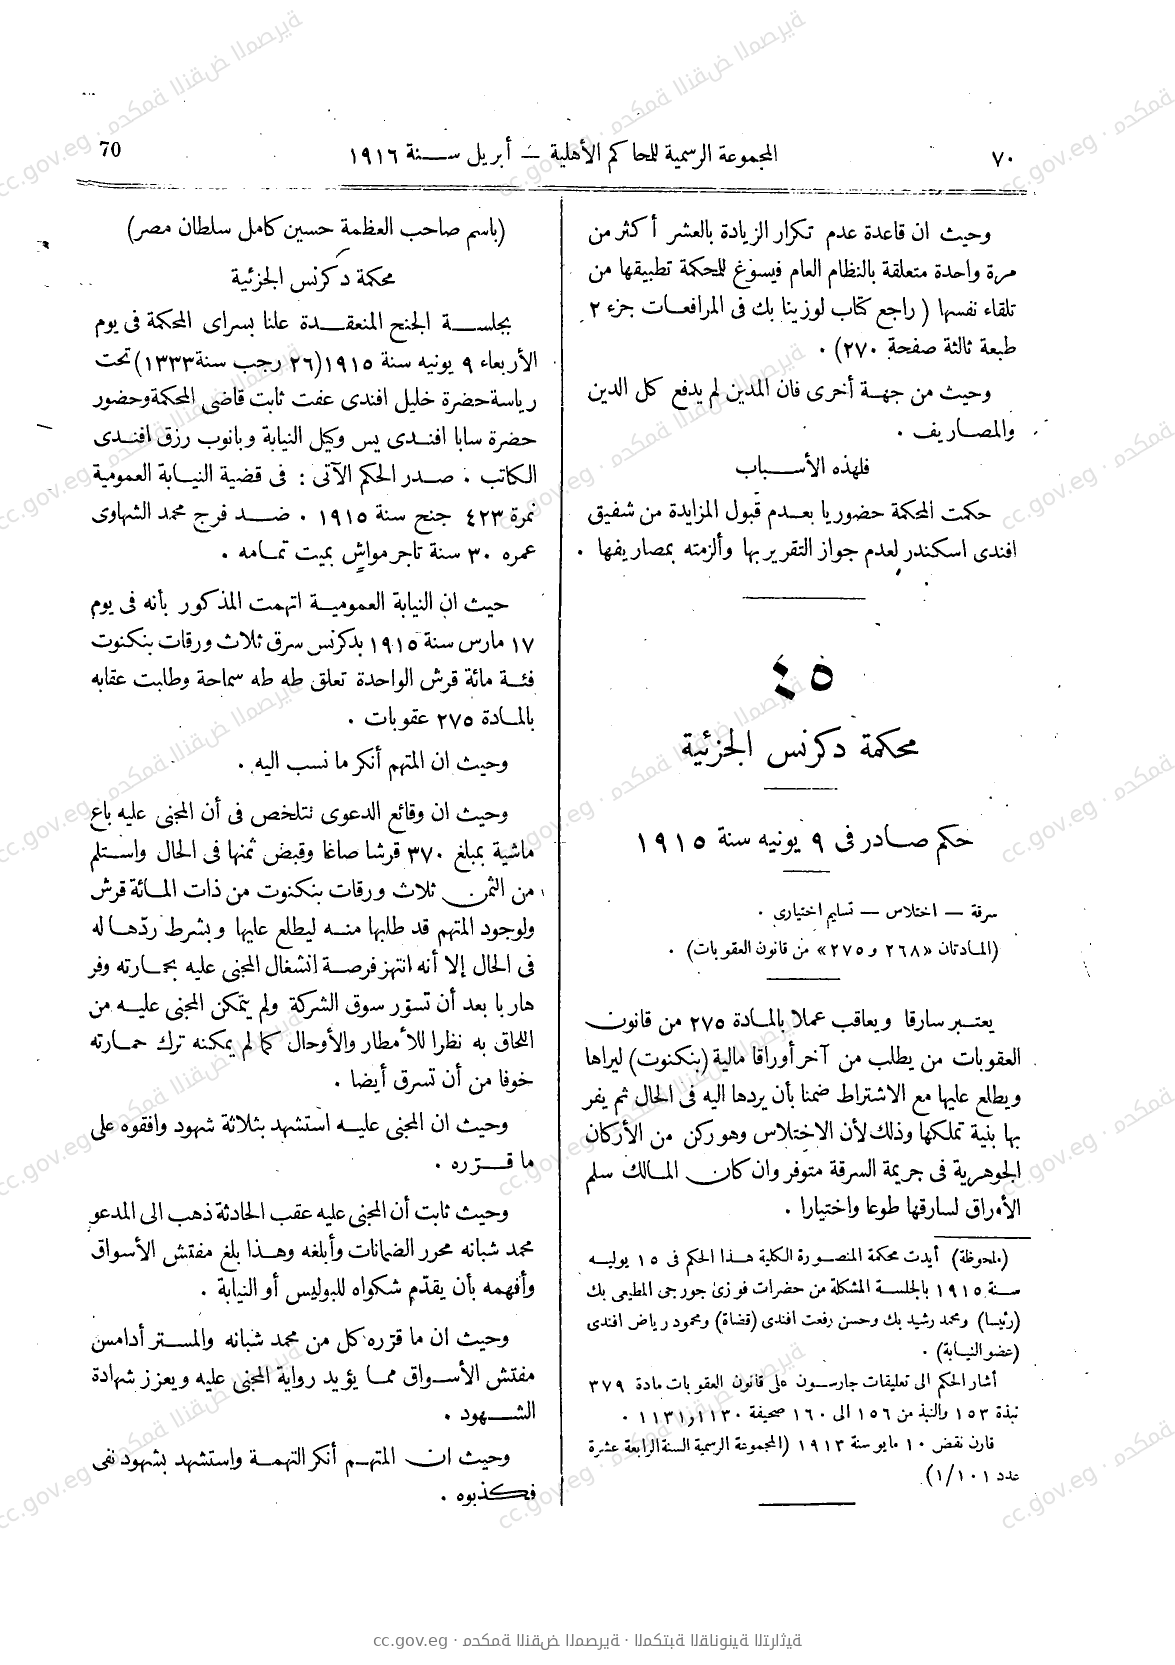 ٧٠
المجموعة الرسمية للمحاكم الأهلية — أبريل سنة ١٩١٦
70
وحيث ان قاعدة عدم تكرار الزيادة بالعشر أكثر من
مرة واحدة متعلقة بالنظام العام فيسوغ للمحكمة تطبيقها من
تلقاء نفسها (راجع كتاب لوزينا بك فى المرافعات جزء ٢
طبعة ثالثة صفحة ٢٧٠) .
وحيث من جهة أخرى فان المدين لم يدفع كل الدين
والمصاريف .
فلهذه الأسباب
حكمت المحكمة حضوريا بعدم قبول المزايدة من شفيق
افندى اسكندر لعدم جواز التقرير بها وألزمته بمصاريفها .
٤٥
محكمة دكرنس الجزئية
حكم صادر فى ٩ يونيه سنة ١٩١٥
سرقة — اختلاس — تسليم اختيارى .
(المادتان «٢٦٨ و ٢٧٥» من قانون العقوبات) .
يعتبر سارقا ويعاقب عملا بالمادة ٢٧٥ من قانون
العقوبات من يطلب من آخر أوراقا مالية (بنكنوت) ليراها
ويطلع عليها مع الاشتراط ضمنا بأن يردها اليه فى الحال ثم يفر
بها بنية تملكها وذلك لأن الاختلاس وهو ركن من الأركان
الجوهرية فى جريمة السرقة متوفر وان كان المالك سلم
الأوراق لسارقها طوعا واختيارا .
(ملحوظة) أيدت محكمة المنصورة الكلية هذا الحكم فى ١٥ يوليه
سنة ١٩١٥ بالجلسة المشكلة من حضرات فوزى جورجى المطيعى بك
(رئيسا) ومحمد رشيد بك وحسن رفعت افندى (قضاة) ومحمود رياض افندى
(عضو النيابة) .
أشار الحكم الى تعليقات جارسون على قانون العقوبات مادة ٣٧٩
نبذة ١٥٣ والنبذ من ١٥٦ الى ١٦٠ صحيفة ١١٣٠ و ١١٣١ .
قارن نقض ١٠ مايو سنة ١٩١٣ (المجموعة الرسمية السنة الرابعة عشرة
عدد ١٠١/١)
(باسم صاحب العظمة حسين كامل سلطان مصر)
محكمة دكرنس الجزئية
بجلسة الجنح المنعقدة علنا بسراى المحكمة فى يوم
الأربعاء ٩ يونيه سنة ١٩١٥ (٢٦ رجب سنة ١٣٣٣) تحت
رياسة حضرة خليل افندى عفت ثابت قاضى المحكمة وحضور
حضرة سابا افندى يس وكيل النيابة وبانوب رزق افندى
الكاتب . صدر الحكم الآتى : فى قضية النيابة العمومية
نمرة ٤٢٣ جنح سنة ١٩١٥ . ضد فرج محمد الشهاوى
عمره ٣٠ سنة تاجر مواش بميت تمامه .
حيث ان النيابة العمومية اتهمت المذكور بأنه فى يوم
١٧ مارس سنة ١٩١٥ بدكرنس سرق ثلاث ورقات بنكنوت
فئة مائة قرش الواحدة تعلق طه طه سماحة وطلبت عقابه
بالمادة ٢٧٥ عقوبات .
وحيث ان المتهم أنكر ما نسب اليه .
وحيث ان وقائع الدعوى تتلخص فى أن المجنى عليه باع
ماشية بمبلغ ٣٧٠ قرشا صاغا وقبض ثمنها فى الحال واستلم
من الثمن ثلاث ورقات بنكنوت من ذات المائة قرش
ولوجود المتهم قد طلبها منه ليطلع عليها وبشرط ردّها له
فى الحال إلا أنه انتهز فرصة انشغال المجنى عليه بحمارته وفر
هاربا بعد أن تسوّر سوق الشركة ولم يتمكن المجنى عليه من
اللحاق به نظرا للأمطار والأوحال كما لم يمكنه ترك حمارته
خوفا من أن تسرق أيضا .
وحيث ان المجنى عليه استشهد بثلاثة شهود وافقوه على
ما قرّره .
وحيث ثابت أن المجنى عليه عقب الحادثة ذهب الى المدعو
محمد شبانه محرر الضمانات وأبلغه وهذا بلغ مفتش الأسواق
وأفهمه بأن يقدّم شكواه للبوليس أو النيابة .
وحيث ان ما قرّره كل من محمد شبانه والمستر أدامسن
مفتش الأسواق مما يؤيد رواية المجنى عليه ويعزز شهادة
الشهود .
وحيث ان المتهم أنكر التهمة واستشهد بشهود نفى
فكذبوه .
cc.gov.eg · محكمة النقض المصرية · المكتبة القانونية التراثية